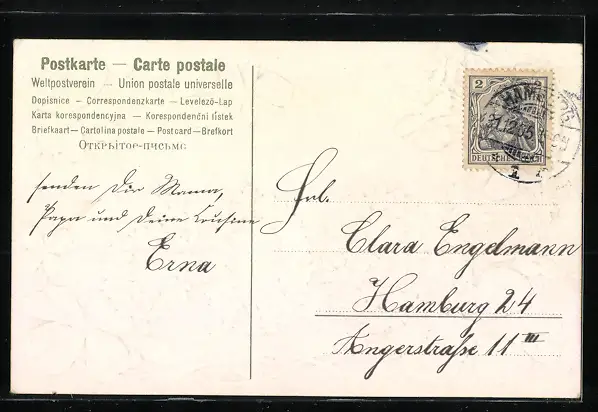 Postkarte — Carte postale
Weltpostverein — Union postale universelle
Dopisnice — Correspondenzkarte — Levelező-Lap
Karta korespondencyjna — Korespondenční lístek
Briefkaart — Cartolina postale — Postcard — Brefkort
Открытое-письмо
senden Dir Mama,
Papa und Deine Cousine
Erna
2
HAMBURG
31.12.05
DEUTSCHES REICH
1
Frl.
Clara Engelmann
Hamburg 24
Angerstraße 11 III